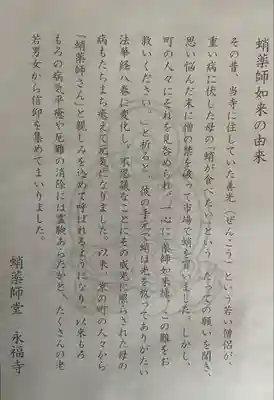 蛸薬師如来の由来
その昔、当寺に住していた善光（ぜんこう）という若い僧侶が、
重い病に伏した母の「蛸が食べたい」という、たっての願いを聞き、
思い悩んだ末に僧の禁を破って市場で蛸を買いました。しかし、
町の人々にそれを見咎められ、一心に「薬師如来様、この難をお
救いください。」と祈ると、彼の手元で蛸は光を放ってありがたい
法華経八巻に変化し、不思議なことにその威光に照らされた母の
病もたちまち癒えて元気になりました。以来、京の町の人々から
「蛸薬師さん」と親しみを込めて呼ばれるようになり、以来もろ
もろの病気平癒や厄難の消除には霊験あらたかと、たくさんの老
若男女から信仰を集めてまいりました。
蛸薬師堂　永福寺